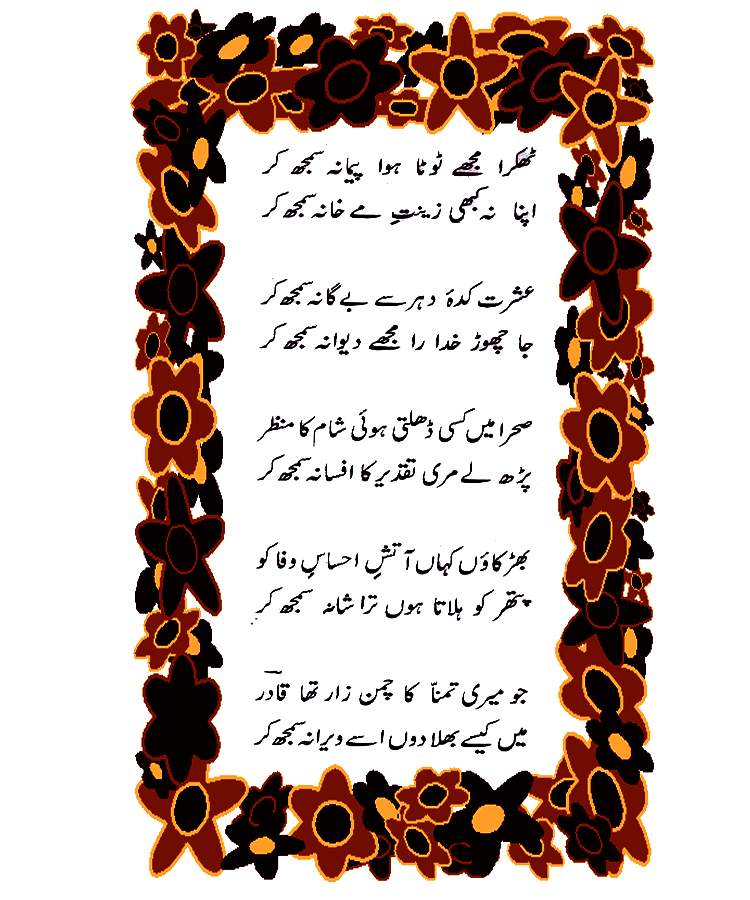 ٹھکرا مجھے ٹوٹا ہوا پیمانہ سمجھ کر
اپنا نہ کبھی زینتِ مے خانہ سمجھ کر
عشرت کدۂ دہر سے بے گانہ سمجھ کر
جا چھوڑ خدا را مجھے دیوانہ سمجھ کر
صحرا میں کسی ڈھلتی ہوئی شام کا منظر
پڑھ لے مری تقدیر کا افسانہ سمجھ کر
بھڑکاؤں کہاں آتشِ احساسِ وفا کو
پتھر کو ہلاتا ہوں ترا شانہ سمجھ کر
جو میری تمنّا کا چمن زار تھا قادر
میں کیسے بھلا دوں اسے ویرانہ سمجھ کر